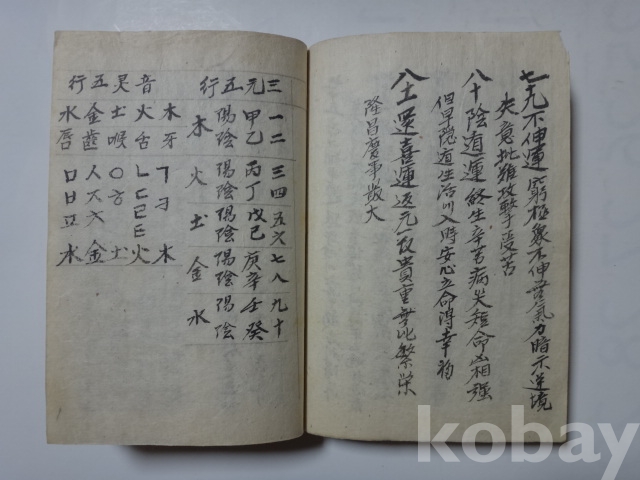 七九 不伸運 窮極象不伸無氣力暗示逆境
失意批難攻擊受苦
八十 陰遁運 終生辛苦病災短命凶相强
但早隱遁生活叫入時安心立命得幸福
八十一 還喜運 返元 貴重無比繁榮
隆昌慶事 大
三 一二 三四 五六 七八 九十
元 甲乙 丙丁 戊己 庚辛 壬癸
五 陽陰 陽陰 陽陰 陽陰 陽陰
行 木 火 土 金 水
音灵五行
木牙 ㄱㅋ 木
火舌 ㄴㄷㄹㅌ 火
土喉 ㅇㅎ 土
金齒 ㅅㅈㅊ 金
水唇 ㅁㅂㅍ 水
kobay